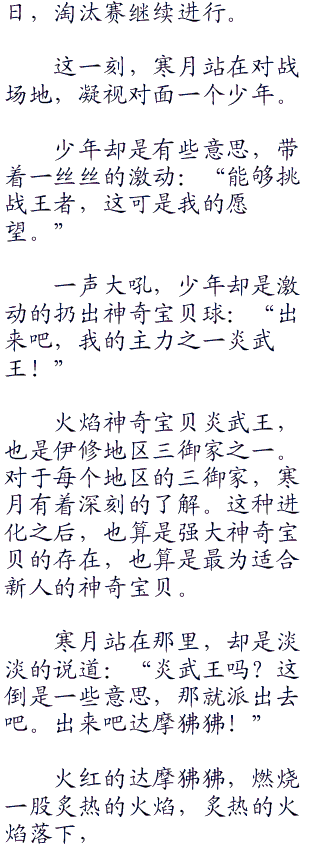 日，淘汰赛继续进行。
这一刻，寒月站在对战
场地，凝视对面一个少年。
少年却是有些意思，带
着一丝丝的激动：“能够挑
战王者，这可是我的愿
望。”
一声大吼，少年却是激
动的扔出神奇宝贝球：“出
来吧，我的主力之一炎武
王！”
火焰神奇宝贝炎武王，
也是伊修地区三御家之一。
对于每个地区的三御家，寒
月有着深刻的了解。这种进
化之后，也算是强大神奇宝
贝的存在，也算是最为适合
新人的神奇宝贝。
寒月站在那里，却是淡
淡的说道：“炎武王吗？这
倒是一些意思，那就派出去
吧。出来吧达摩狒狒！”
火红的达摩狒狒，燃烧
一股炙热的火焰，炙热的火
焰落下，